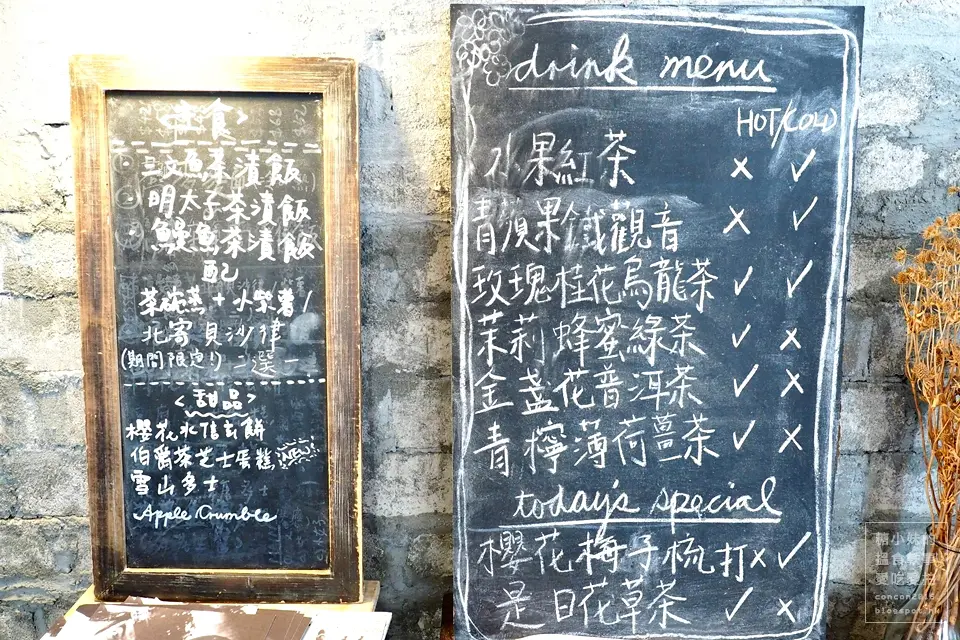 <定食>
三文魚茶漬飯
明太子茶漬飯
鰻魚茶漬飯
配
茶碗蒸+小柴薯/
北寄貝沙律
(期間限定!) 二選一
<甜品>
櫻花水信玄餅
伯爵茶芝士蛋糕 NEW
雪山多士
Apple Crumble
drink menu
HOT/COLD
水果紅茶 × ✓
青蘋果鐵觀音 × ✓
玫瑰桂花烏龍茶 ✓ ✓
茉莉蜂蜜綠茶 ✓ ×
金盞花普洱茶 ✓ ×
青檸薄荷薑茶 ✓ ×
today's special
櫻花梅子梳打 × ✓
是日花草茶 ✓ ×
concon2816
blogspot.hk